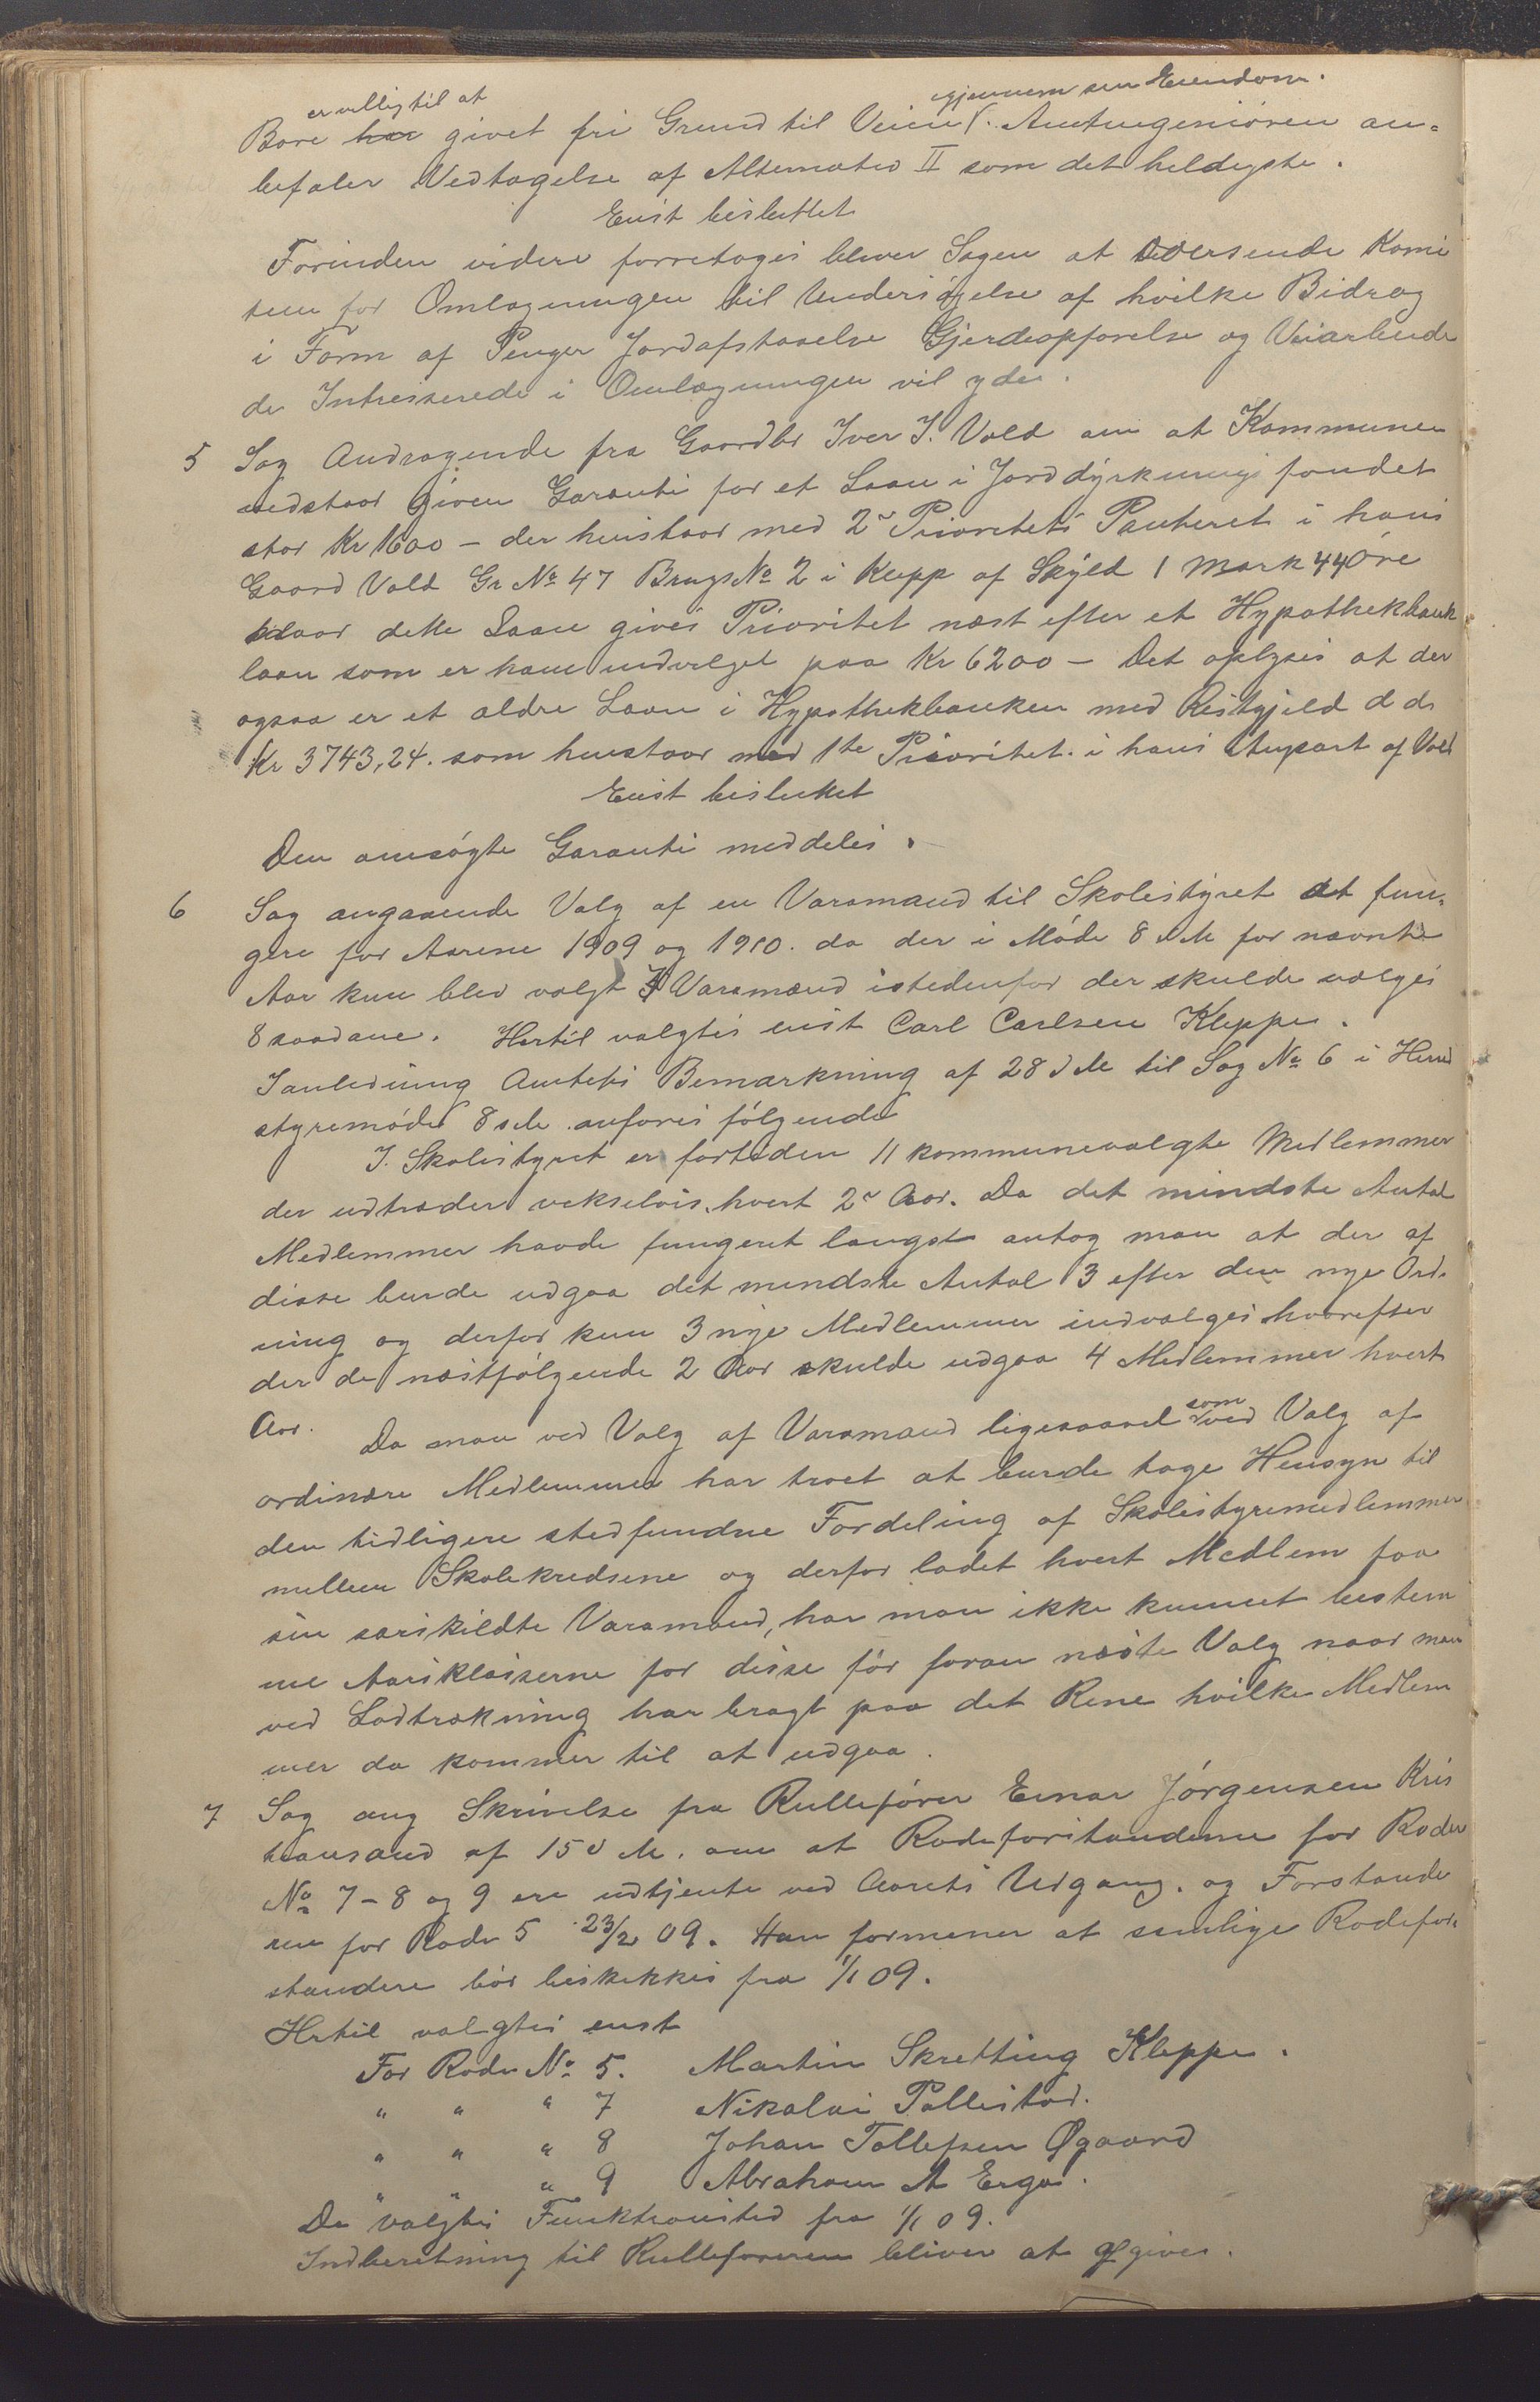 er villig til at
gjennem sin Eiendom.
Bore har givet fri Grund til Veien. Amtingeniøren an-
befaler Vedtagelse af Alternativ II som det heldigste.
Enst besluttet
Forinden videre foretages bliver Sagen at oversende Komi
teen for Omlægningen til Undersøgelse af hvilke Bidrag
i Form af Penger Jordafstaaelse Gjerdeopførelse og Veiarbeide
de Intresserede i Omlægningen vil yde.
5 Sag Andragende fra Gaardbr Iver I. Vold om at Kommunen
vedstaar given Garanti for et Laan i Jorddyrkningsfondet
stor Kr 1600 - der henstaar med 2n Prioritets Panteret i hans
Gaard Vold Gr No 47 Brugs No 2 i Klepp af Skyld 1 Mark 44 Øre
naar dette Laan gives Prioritet næst efter et Hypothekbank
laan som er ham indvilget paa Kr 6200 - Det oplyses at der
ogsaa er et ældre Laan i Hypothekbanken med Restgjeld d d.
Kr 3743,24. som henstaar med 1te Prioritet i hans Anpart af Vold
Enst besluttet
Den ansøgte Garanti meddeles.
6 Sag angaaende Valg af en Varamand til Skolestyret at fun-
gere for Aarene 1909 og 1910. da der i Møde 8 d M for nævnte
Aar kun blev valgt 7 Varamænd istedenfor der skulde vælges
8 saadane. Hertil valgtes enst Carl Carlsen Kleppe.
I anledning Amtets Bemærkning af 28 d M til Sag No 6 i Herred
styremøde 8 d M anføres følgende
I. Skolestyret er fortiden 11 kommunevalgte Medlemmer
der udtræder vekselvis hvert 2n Aar. Da det mindste Antal
Medlemmer havde fungeret længst antog man at der af
disse burde udgaa det mindste Antal 3 efter den nye Ord-
ning og derfor kun 3 nye Medlemmer indvælges hvorefter
der de næstfølgende 2 Aar skulde udgaa 4 Medlemmer hvert
Aar. Da man ved Valg af Varamænd ligesaavel som ved Valg af
ordinære Medlemmer har troet at burde tage Hensyn til
den tidligere stedfundne Fordeling af Skolestyremedlemmer
mellem Skolekredsene og derfor ladet hvert Medlem faa
sin særskildte Varamand, har man ikke kunnet bestem
me Aarsklasserne for disse før foran næste Valg naar man
ved Lodtrækning har bragt paa det Rene hvilke Medlem
mer da kommer til at udgaa.
7 Sag ang Skrivelse fra Rullefører Einar Jørgensen Kris
tiansand af 15 d M. om at Rodeforstanderne for Roder
No 7-8 og 9 ere udtjente ved Aarets Udgang. og Forstande
ren for Rode 5 23/2 09. Han formener at samlige Rodefor-
standere bør beskikkes fra 1/1 09.
Hertil valgtes enst
For Rode No 5. Martin Skretting Kleppe.
" " " 7 Nikolai Pollestad.
" " " 8 Johan Tollefsen Øgaard
" " " 9 Abraham A Erga.
De valgtes Funktionstid fra 1/1 09.
Indberetning til Rulleføreren bliver at afgives.